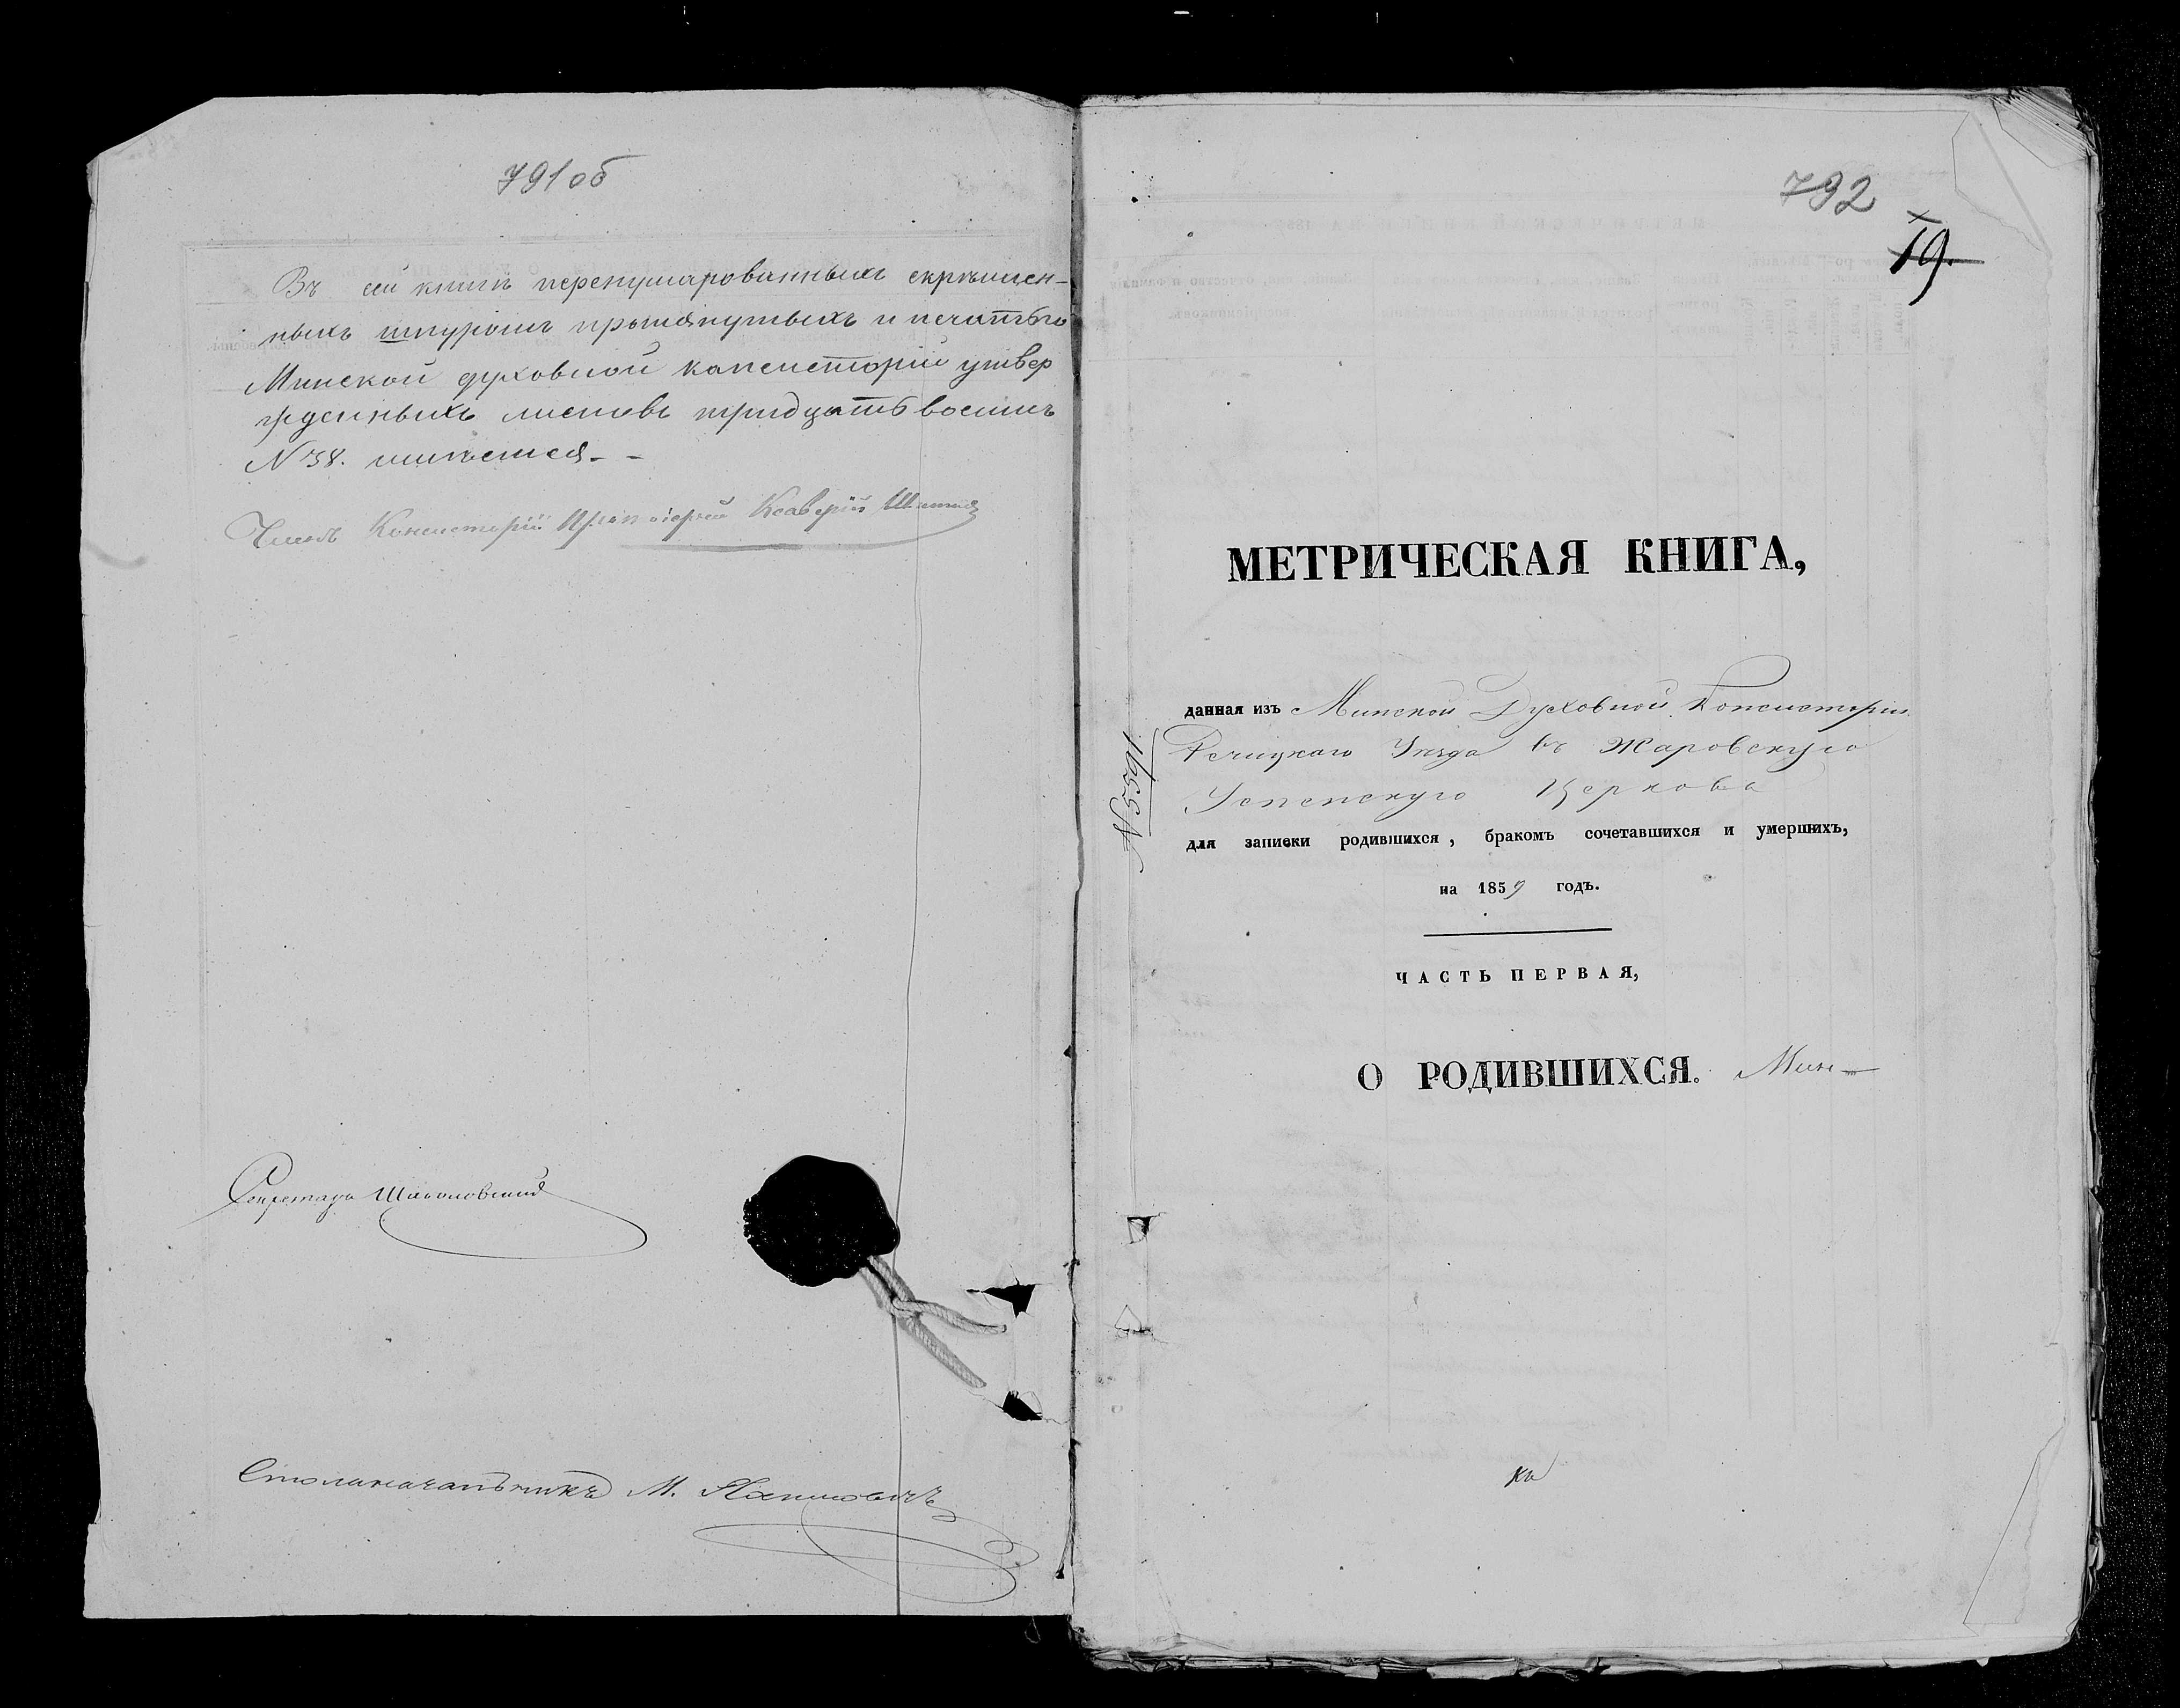 791 об
Въ сей книгѣ перенумерованныхъ скрѣплен-
ныхъ шнуромъ протянутыхъ и печатью
Минской духовной консисторіи утвер
жденныхъ листовъ тридцать восемь
N 38. имѣется. -
Членъ Консисторіи Протоіерей Ксаверій
Секретарь
Столоначальникъ М.
792
19.
МЕТРИЧЕСКАЯ КНИГА,
данная изъ Минской Духовной Консисторіи
Речицкаго Уѣзда въ Жаровскую
Успенскую Церковь
для записки родившихся, бракомъ сочетавшихся и умершихъ,
на 1859 годъ.
ЧАСТЬ ПЕРВАЯ,
О РОДИВШИХСЯ. Мин-